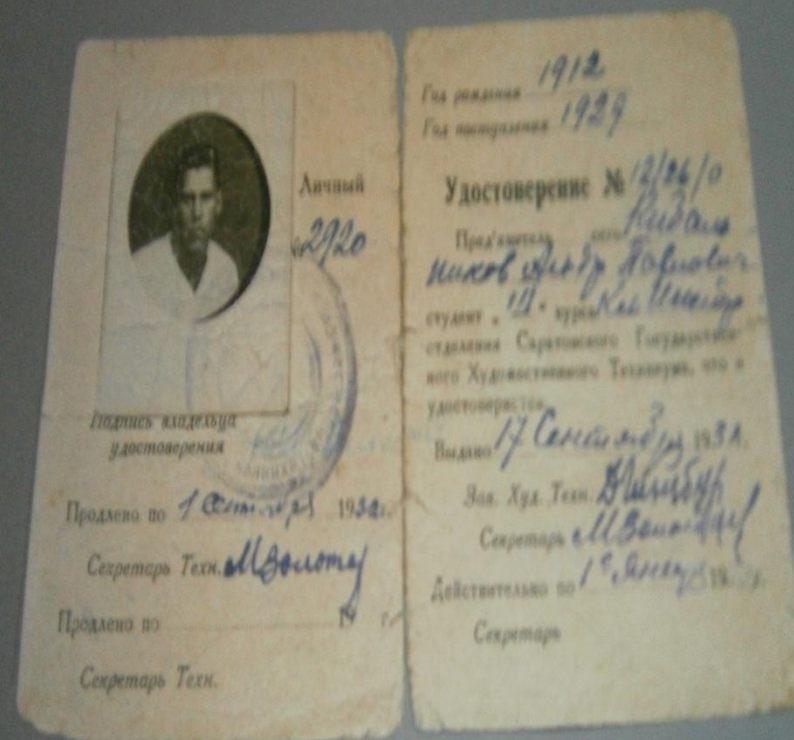 Личный
№2920
Подпись владельца
удостоверения
Продлено по 1 Сентября 193 г.
Секретарь Техн.
Продлено по 19 г.
Секретарь Техн.
Год рождения 1912
Год поступления 1929
Удостоверение № 12/26/0
Пред'явитель сего Кибаль
ников Ал-др Павлович
студент „III“ курса
отделения Саратовского Государствен-
ного Художественного Техникума, что и
удостоверяется.
Выдано 17 Сентября 193 г.
Зав. Худ. Техн.
Секретарь
Действительно по 1е Янв 19 г.
Секретарь